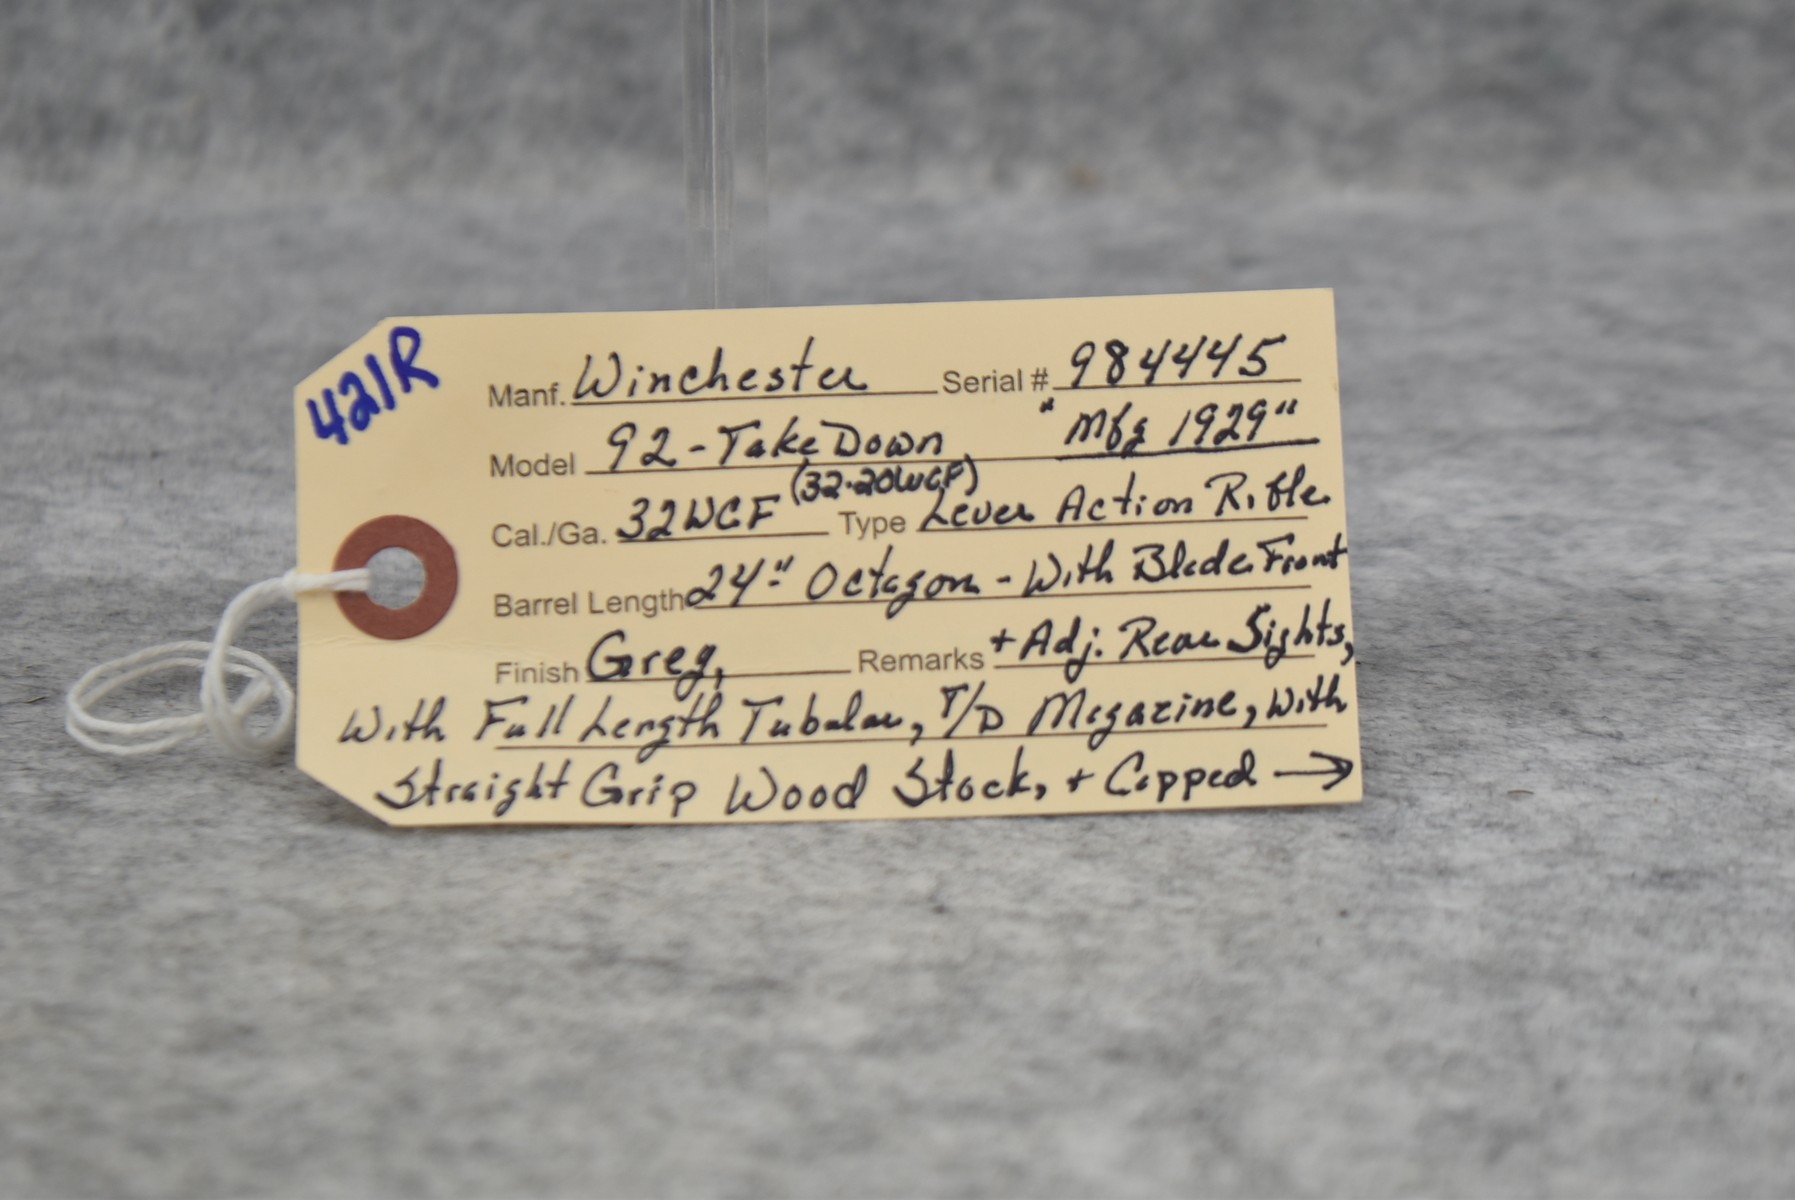 421R
Manf. Winchester Serial # 984445
Model 92-TakeDown "Mfg 1929"
Cal./Ga. 32WCF (32-20WCF) Type Lever Action Rifle
Barrel Length 24" Octagon - With Blade Front
Finish Grey, Remarks + Adj. Rear Sights,
With Full Length Tubular, T/D Magazine, With
Straight Grip Wood Stock, + Capped →